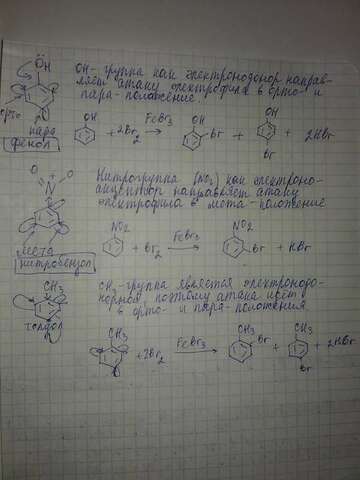 ÖH
OH-группа как электронодонор направ-
ляет атаку электрофила в орто- и
пара-положение.
орто
пара
фенол
OH
+ 2Br₂
FeBr₃
OH
Br
+
OH
Br
+ 2HBr
O
N
O
Нитрогруппа (NO₂) как электроно-
акцептор направляет атаку
электрофила в мета-положение
мета
нитробензол
NO₂
+ Br₂
FeBr₃
NO₂
Br
+ HBr
CH₃
толуол
CH₃-группа является электронодо-
норной, поэтому атака идет
в орто- и пара-положения
CH₃
+ 2Br₂
FeBr₃
CH₃
Br
+
CH₃
Br
+ 2HBr